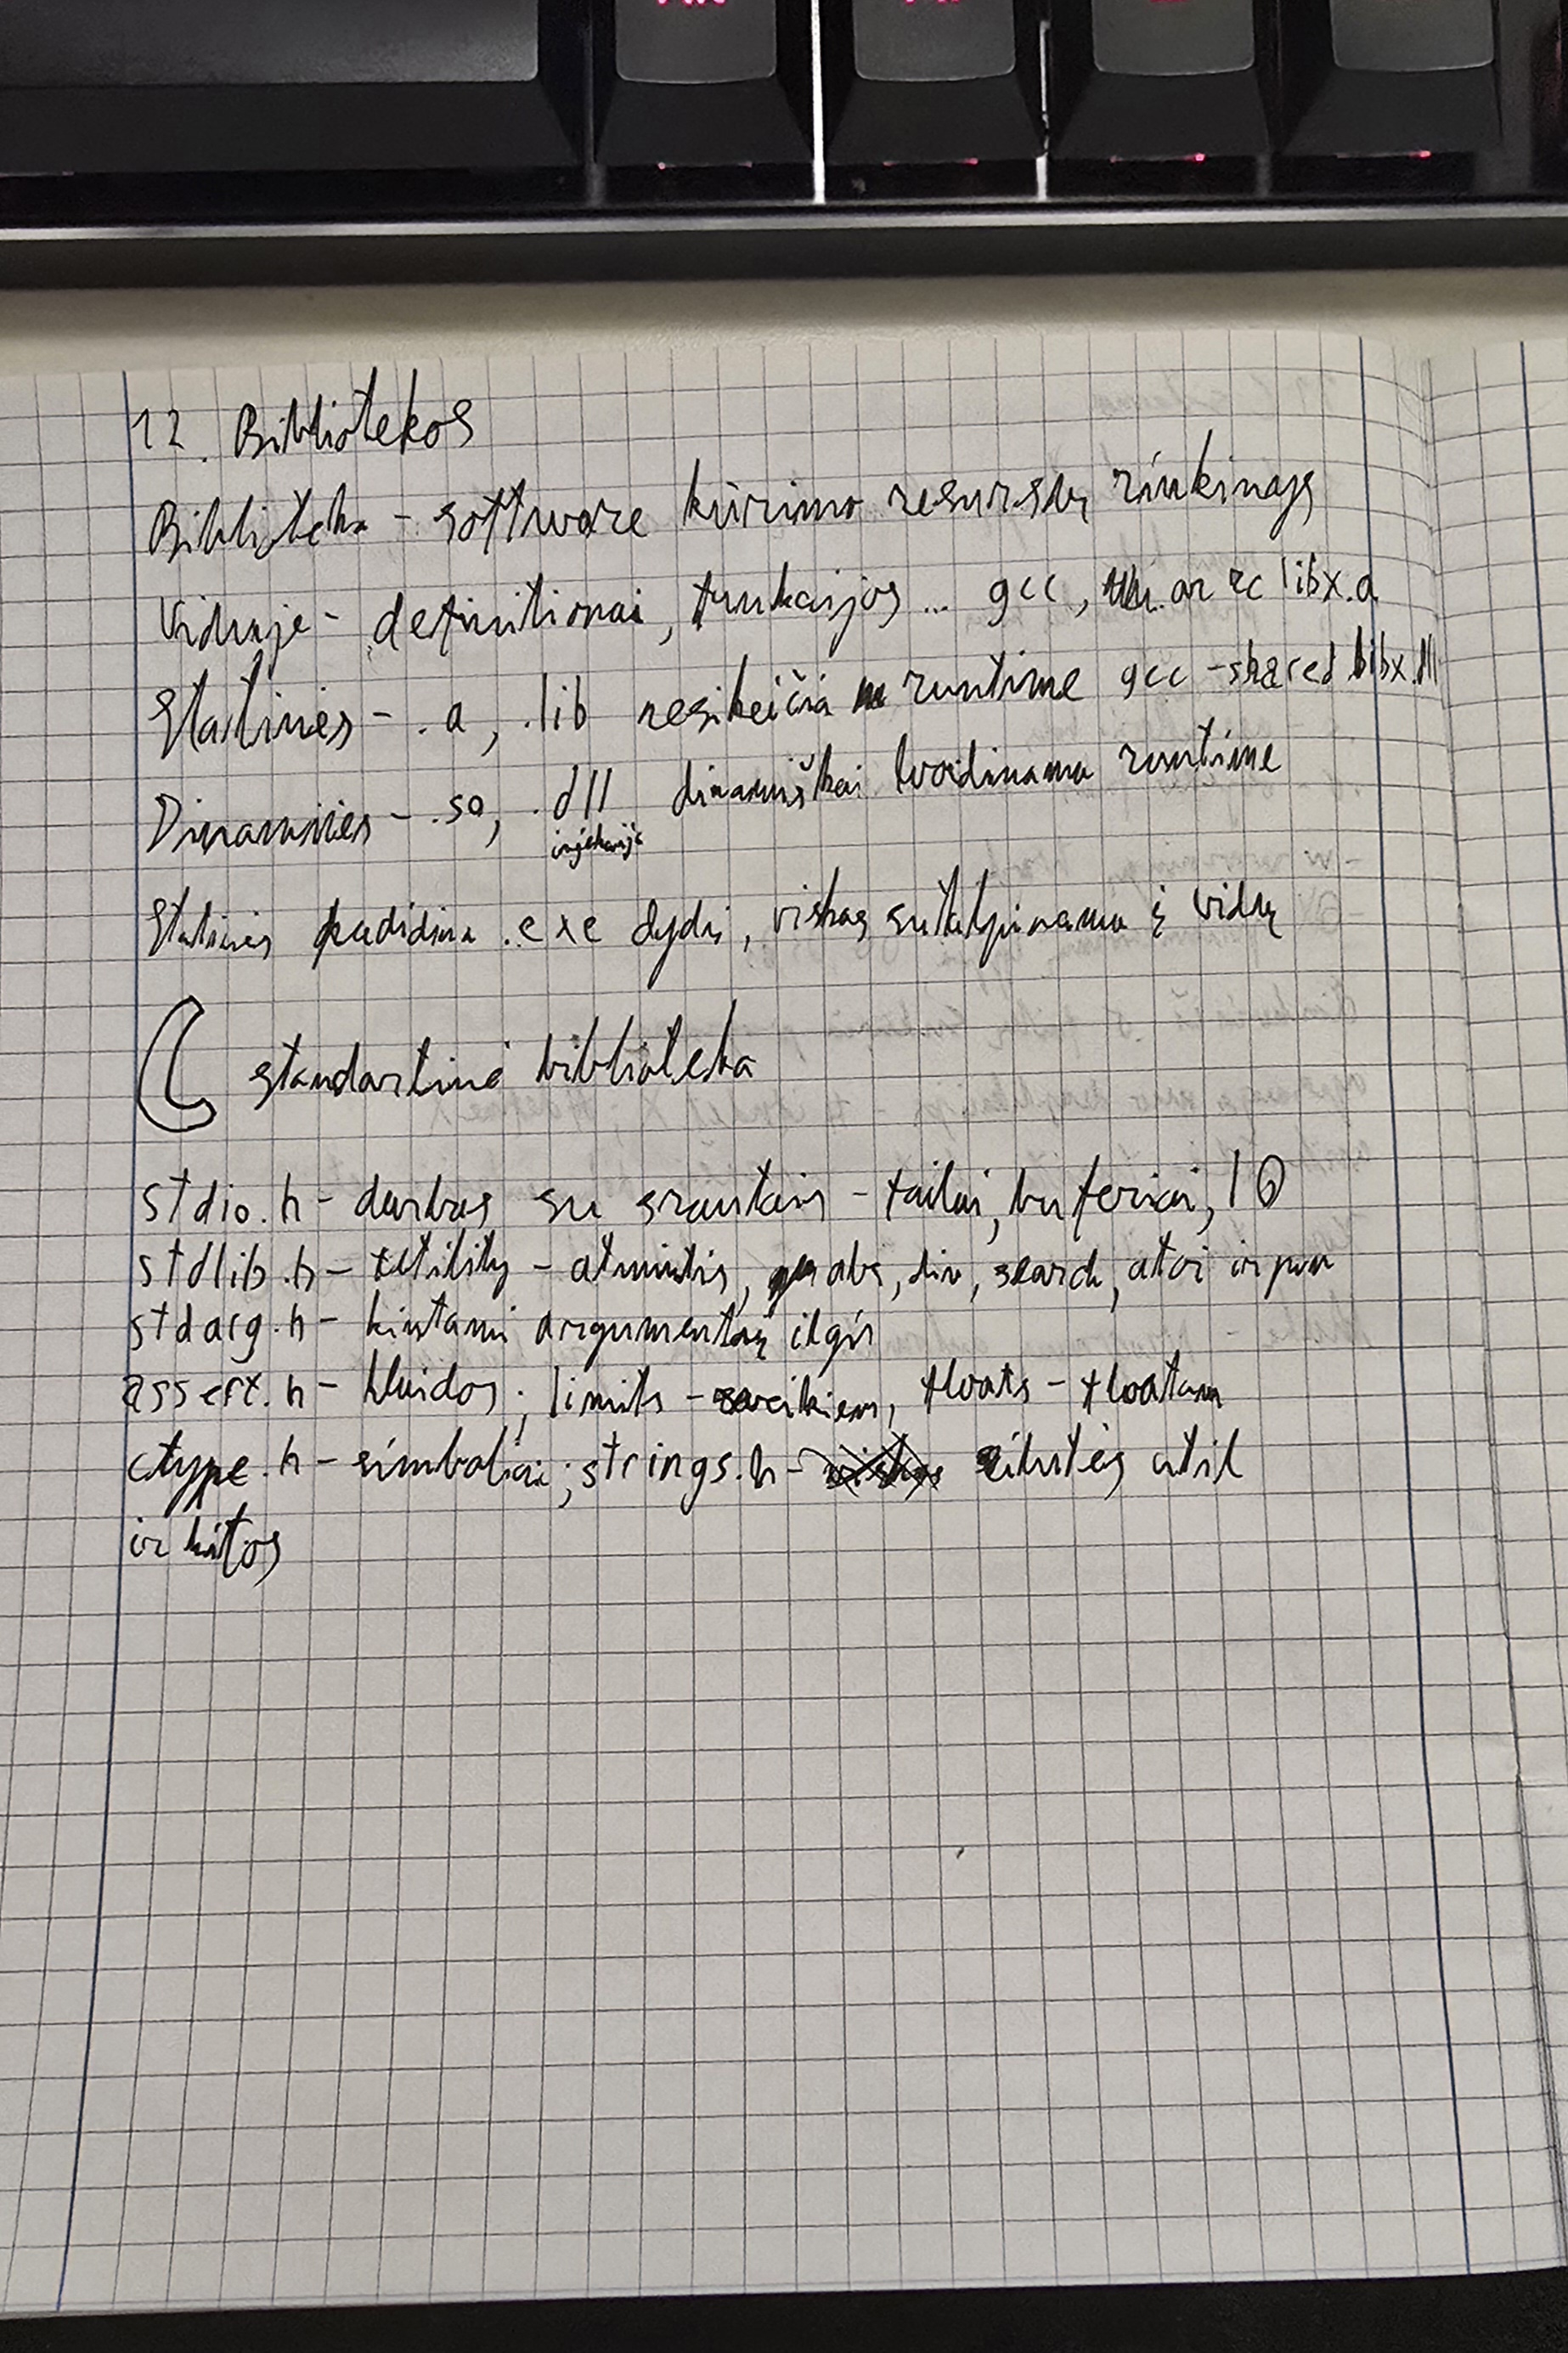 12. Bibliotekos
Biblioteka - software kūrimo resursų rinkinays
Viduje - definitionai, funkcijos... gcc, ar rc libx.a
Statinės - .a, .lib nesikeičia runtime gcc -shared libx.dll
Dinaminės - .so, .dll dinamiškai loadinama runtime
injekcija
Statinės padidina .exe dydį, viskas sutalpinama į vidų
C standartinė biblioteka
stdio.h - darbas su srautais - failai, buferiai, IO
stdlib.h - utility - atmintis, abs, div, search, atoi ir pan
stdarg.h - kintami argumentų ilgis
assert.h - klaidos; limits - sveikiem, floats - floatam
ctype.h - simboliai; strings.h - eilutės util
ir kitos